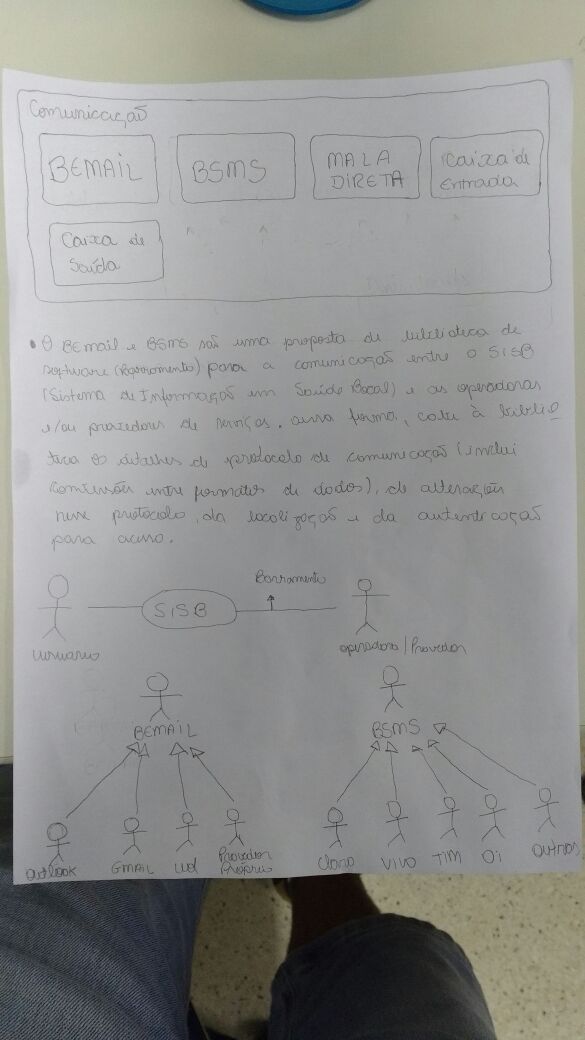 Comunicação
BEMAIL
BSMS
MALA
DIRETA
Caixa de
Entrada
Caixa de
Saída
• O BEmail e BSMS são uma proposta de biblioteca de
software (Barramento) para a comunicação entre o SISB
(Sistema de Informação em Saúde Bucal) e as operadoras
e/ou provedores de serviços. dessa forma, cabe à biblio
teca os detalhes de protocolo de comunicação (inclui
conversões entre formatos de dados), de alteração
nesse protocolo, da localização e da autenticação
para acesso.
Barramento
SISB
usuario
operadora / Provedor
BEMAIL
BSMS
outlook
GMAIL
uol
Provedor
Próprio
Claro
VIVO
TIM
Oi
outros